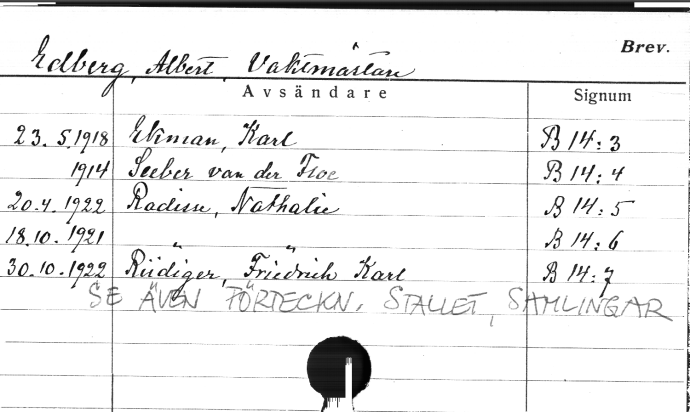 Brev.
Edberg, Albert, Vaktmästare
Avsändare Signum
23.5.1918 Ekman, Karl B 14:3
1914 Seeber van der Floe B 14:4
20.4.1922 Radisse, Nathalie B 14:5
18.10.1921 " " B 14:6
30.10.1922 Rüdiger, Friedrich Karl B 14:7
SE ÄVEN FÖRTECKN. STALLET, SAMLINGAR